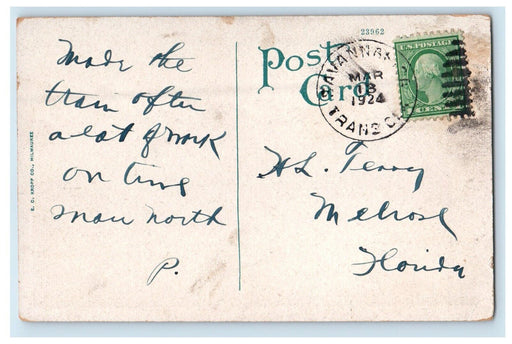 23962
Post Card
SAVANNAH
MAR
18
1924
TRANS CL
U.S. POSTAGE
Made the
train after
a lot of work
on time
man north
P.
H.L. Terry
Melrose
Florida
E. C. KROPP CO., MILWAUKEE